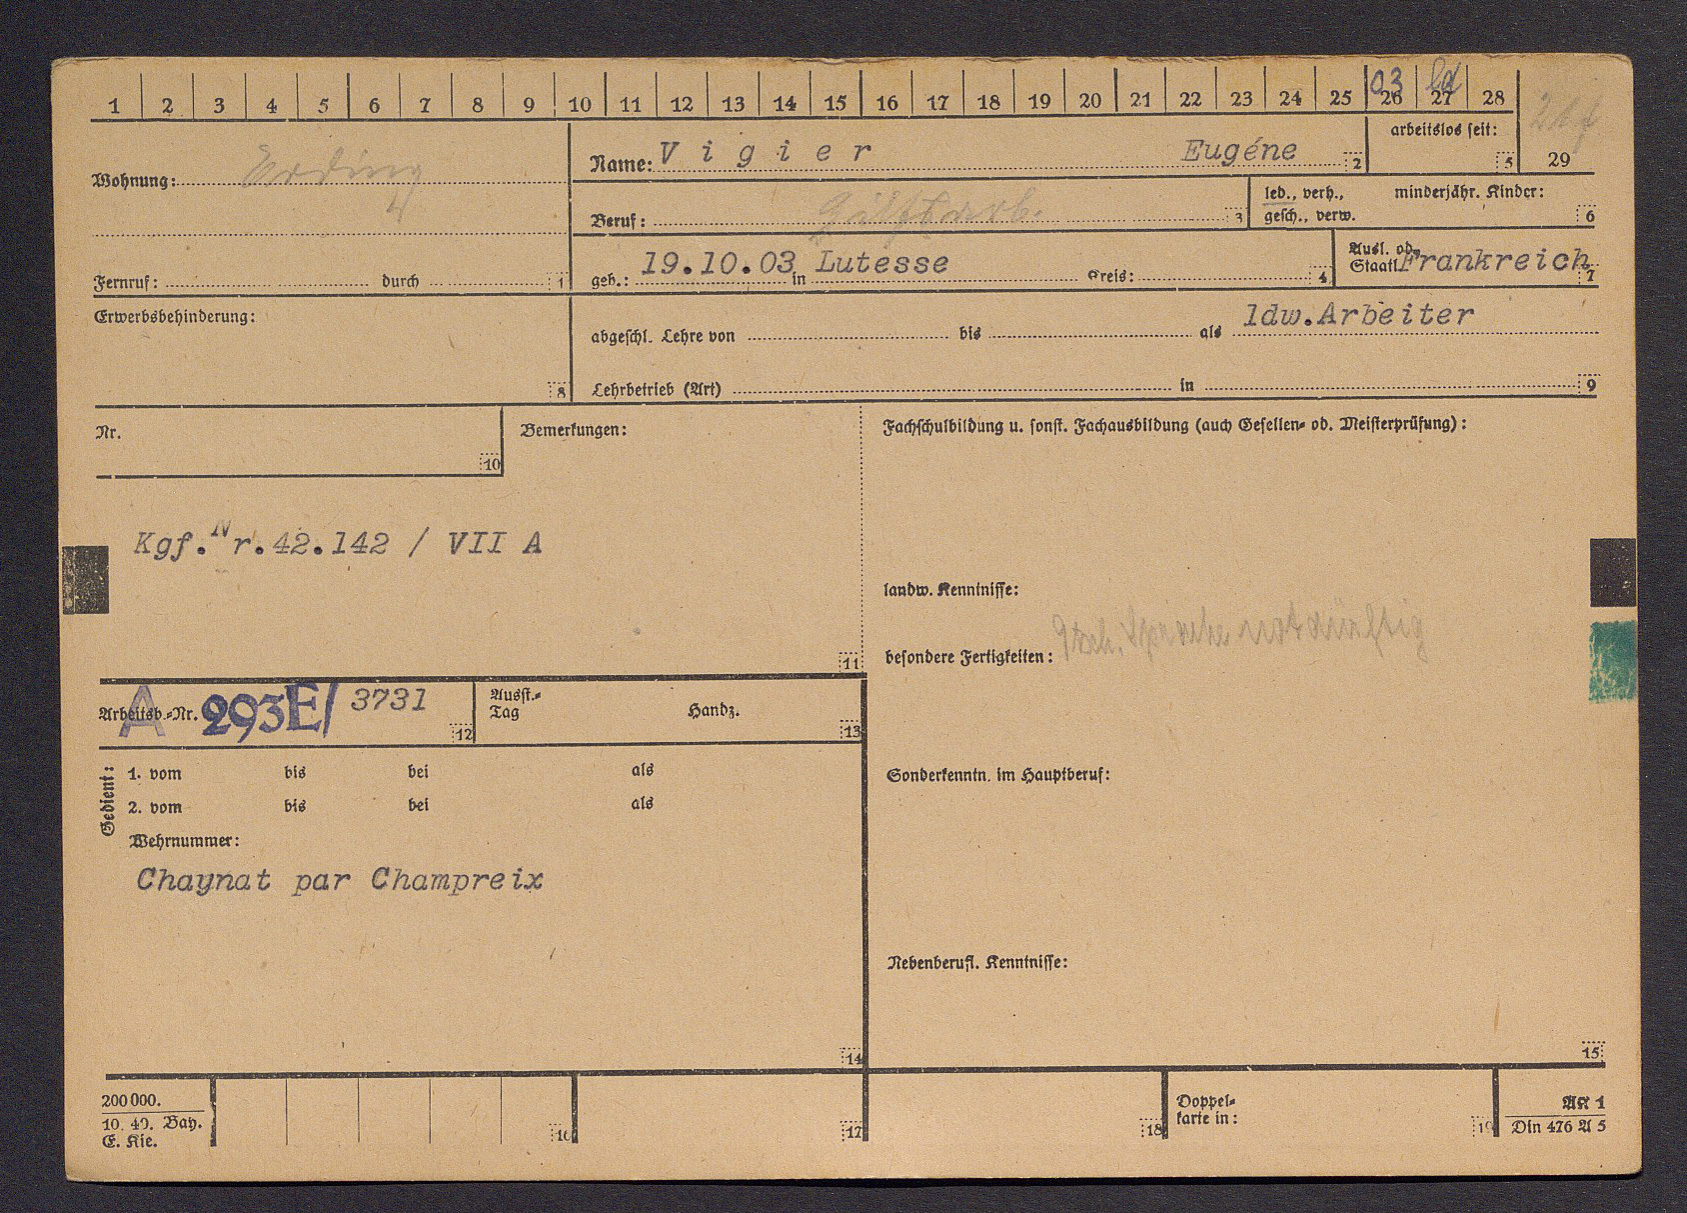 1 2 3 4 5 6 7 8 9 10 11 12 13 14 15 16 17 18 19 20 21 22 23 24 25 26 27 28
03
arbeitslos seit: 5
29
Wohnung: Erding
Name: Vigier Eugéne 2
Beruf: 3
led., verh., gesch., verw. minderjähr. Kinder: 6
Fernruf: durch 1
geb.: 19.10.03 in Lutesse Kreis: 4
Ausl. od. Staatl. Frankreich 7
Erwerbsbehinderung: 8
abgeschl. Lehre von bis als ldw.Arbeiter
Lehrbetrieb (Art) in 9
Nr. 10
Bemerkungen:
Kgf.Nr.42.142 / VII A
11
Fachschulbildung u. sonst. Fachausbildung (auch Gesellen- od. Meisterprüfung):
landw. Kenntnisse:
besondere Fertigkeiten: Sprache notdürftig
Arbeitsb.-Nr. A 293E/ 3731 12
Ausst.-Tag Handz. 13
Gedient:
1. vom bis bei als
2. vom bis bei als
Wehrnummer:
Chaynat par Champreix
14
Sonderkenntn. im Hauptberuf:
Nebenberufl. Kenntnisse:
15
200 000.
10. 40. Bay.
E. Kie.
16
17
18
Doppel-
karte in: 19
AK 1
Din 476 A 5